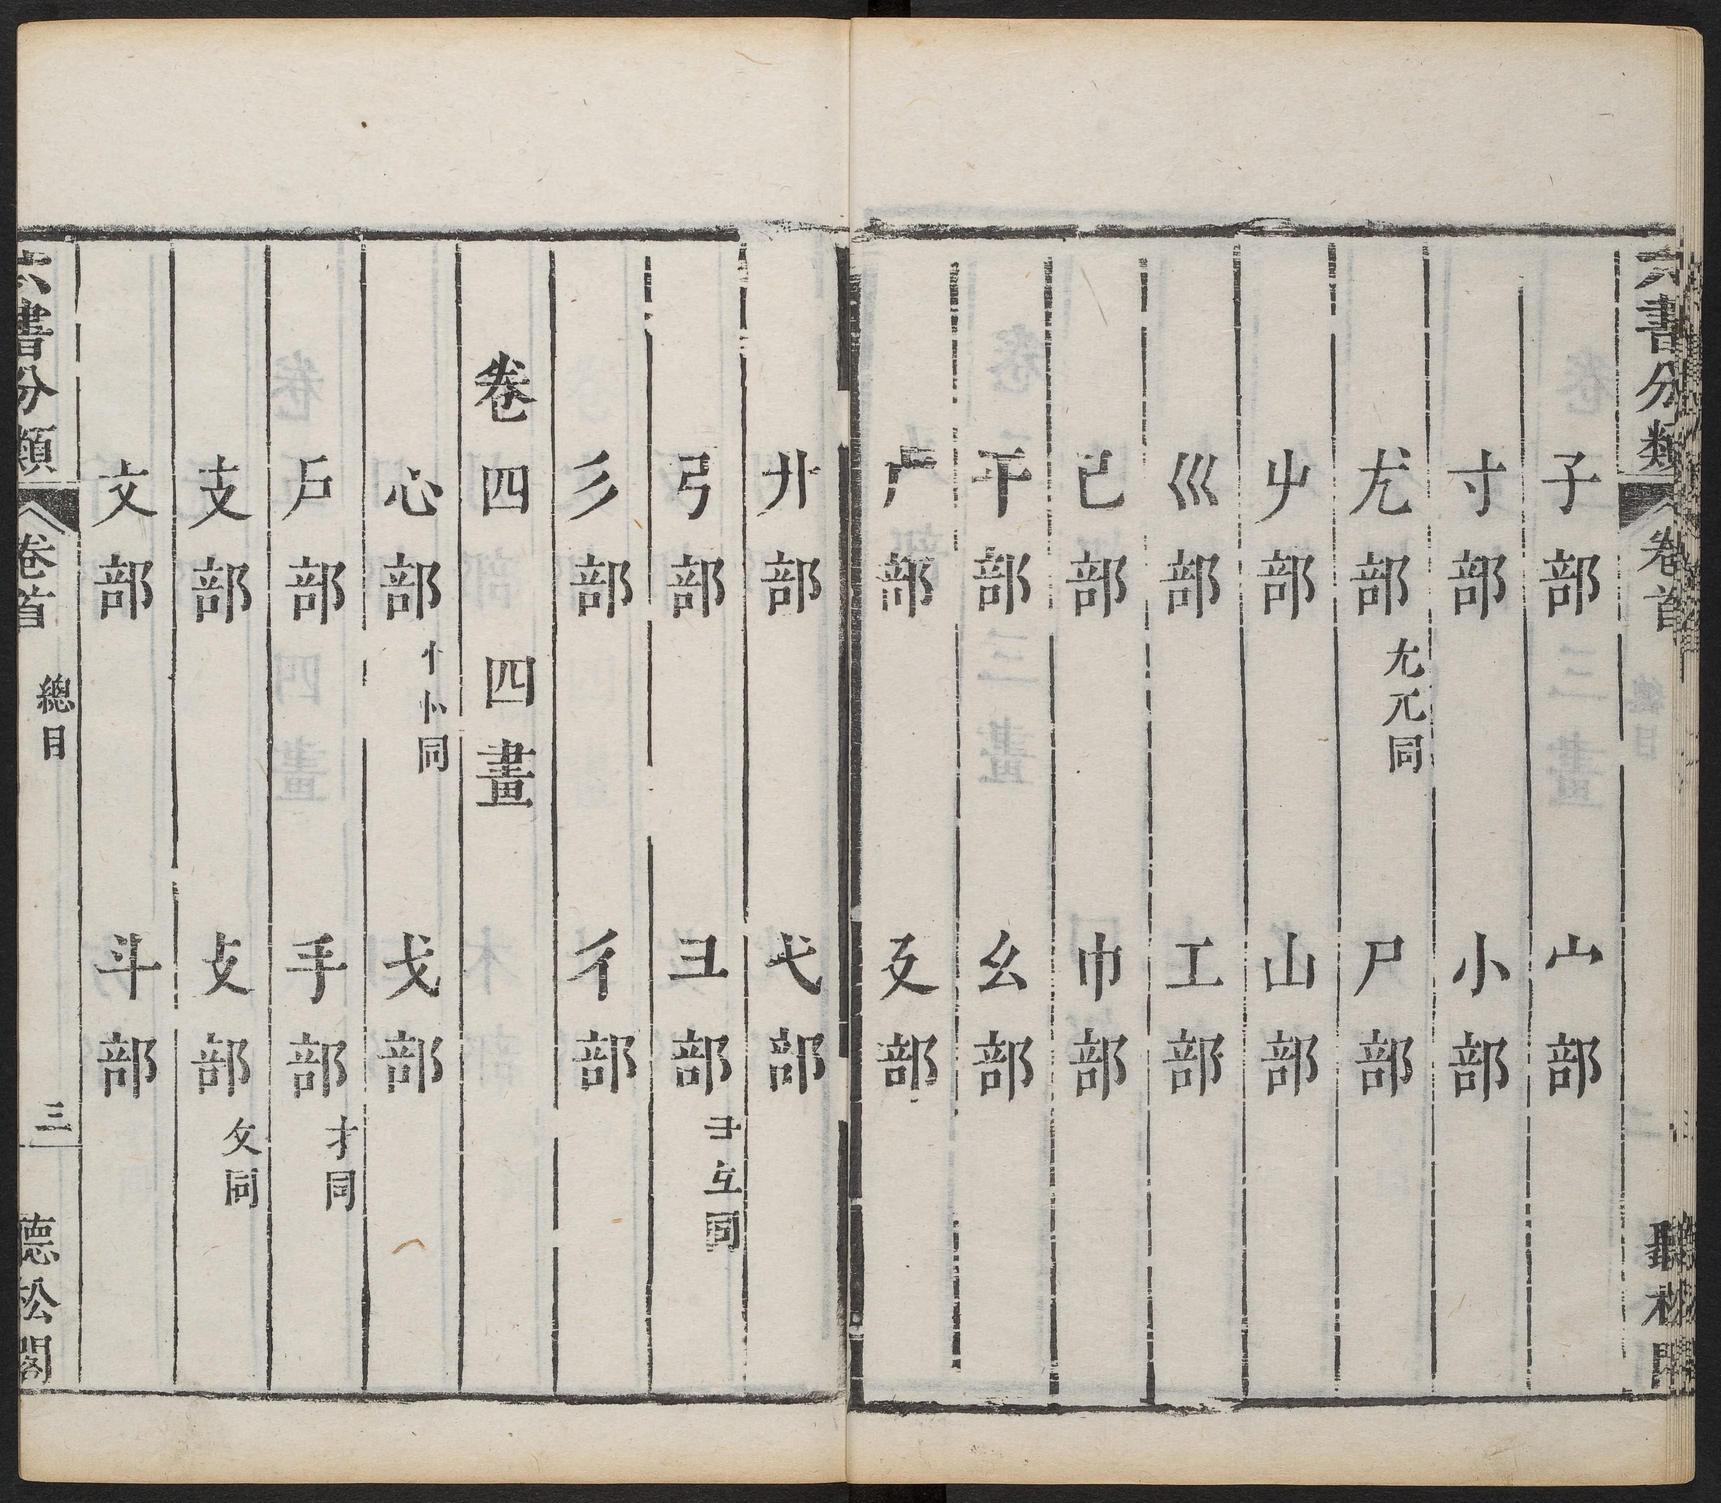 六書分類 卷首
子部 宀部
寸部 小部
尢部 尣兀同 尸部
屮部 山部
巛部 工部
己部 巾部
干部 幺部
广部 廴部
廾部 弋部
弓部 彐部 彑同
彡部 彳部
卷四 四畫
心部 忄㣺同 戈部
戶部 手部 扌同
支部 攴部 攵同
文部 斗部
六書分類 卷首 總目 三 聽松閣